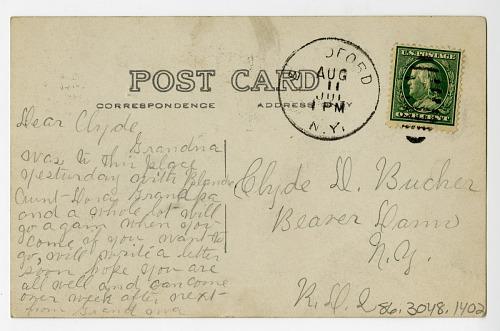 POST CARD
CORRESPONDENCE
ADDRESS
AUG
11
1 PM
N.Y.
U.S. POSTAGE
ONE CENT
Dear Clyde
Grandma
was to this place
yesterday with Blanch
Aunt Grandpa
and a whole lot will
go again when you
come if you want to
go, will write a letter
soon hope you are
all well and can come
over week after next-
from Grandma
Clyde D. Bucher
Beaver Dams
N.Y.
R.D. 2
86.3048.1402